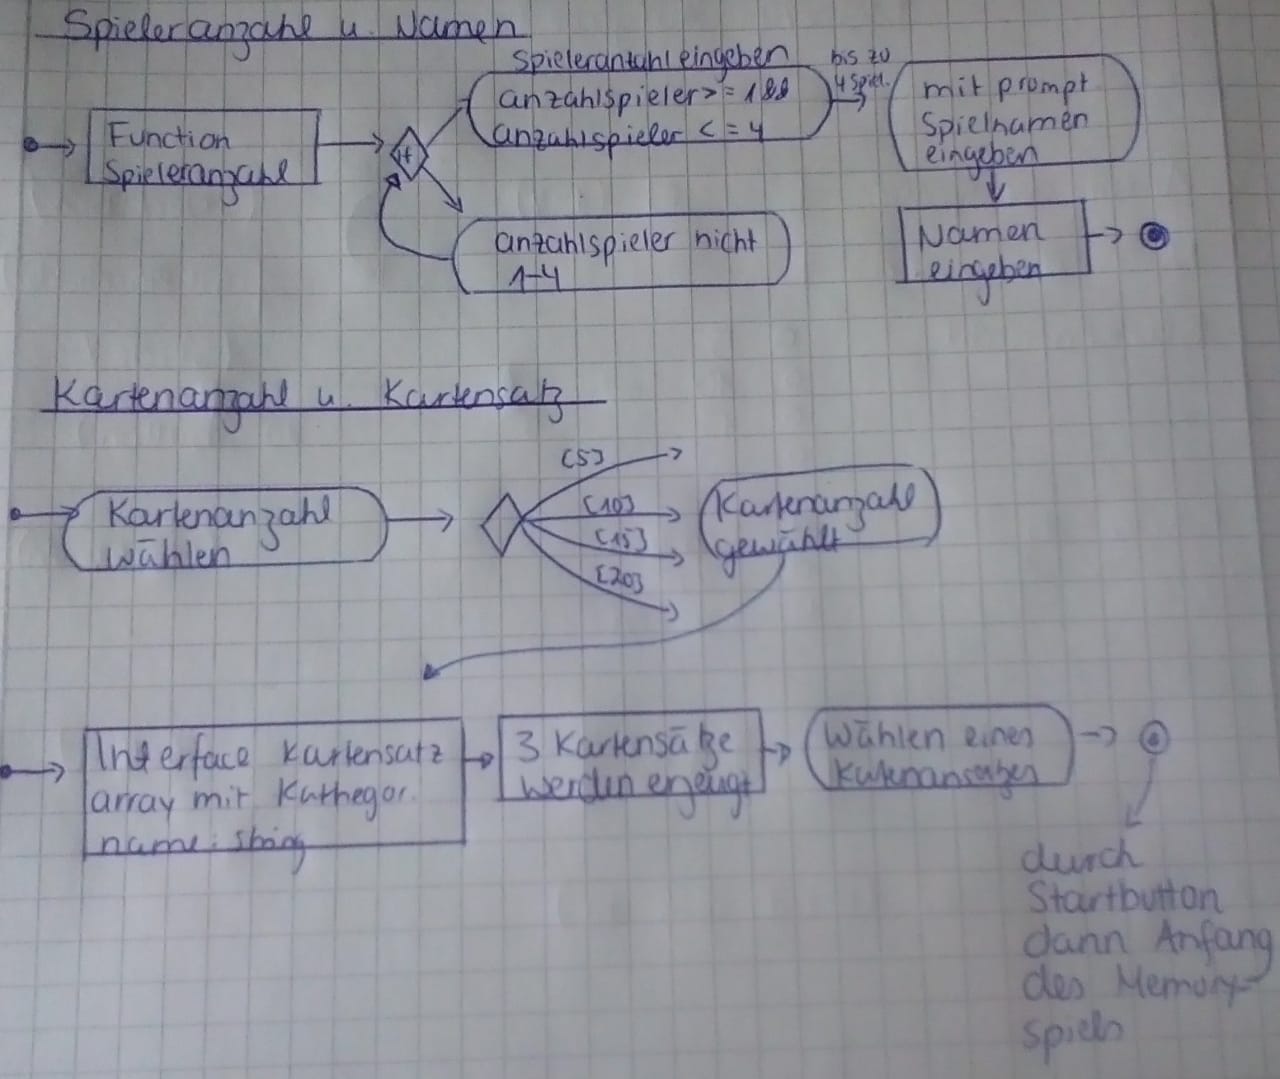 Spieleranzahl u. Namen
Spieleranzahl eingeben
anzahlspieler >= 1 &&
anzahlspieler <= 4
bis zu
4 Spiel.
mit prompt
Spielnamen
eingeben
Function
Spieleranzahl
+
anzahlspieler nicht
1-4
Namen
eingeben
Kartenanzahl u. Kartensatz
Kartenanzahl
wählen
[5]
[10]
[15]
[20]
Kartenanzahl
gewählt
Interface Kartensatz
array mit Kathegor.
name: string
3 Kartensätze
werden erzeugt
Wählen eines
durch
Startbutton
dann Anfang
des Memory-
spiels